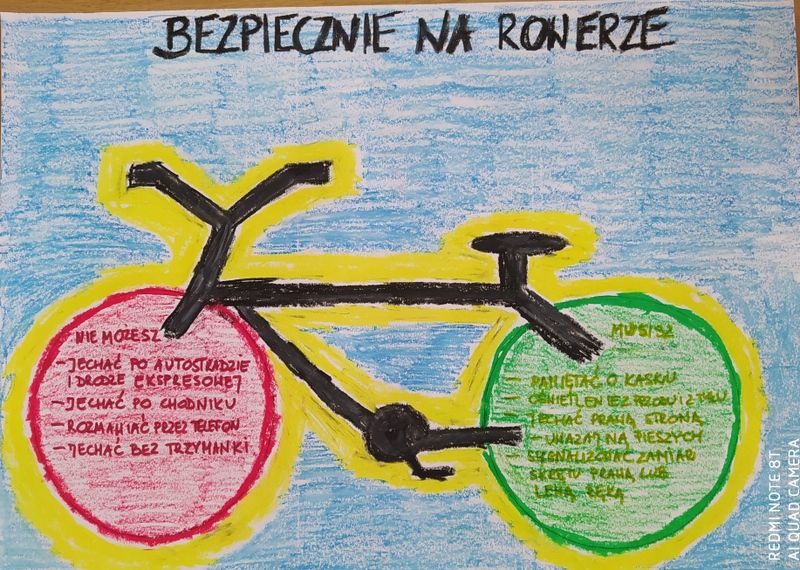 BEZPIECZNIE NA ROWERZE
NIE MOŻESZ
- JECHAĆ PO AUTOSTRADZIE
I DRODZE EKSPRESOWEJ
- JECHAĆ PO CHODNIKU
- ROZMAWIAĆ PRZEZ TELEFON
- JECHAĆ BEZ TRZYMANKI
MUSISZ
- PAMIĘTAĆ O KASKU
- OŚWIETLENIE Z PRZODU I Z TYŁU
- JECHAĆ PRAWĄ STRONĄ
- UWAŻAJ NA PIESZYCH
- SYGNALIZOWAĆ ZAMIAR
SKRĘTU PRAWĄ LUB
LEWĄ RĘKĄ
REDMI NOTE 8T
AI QUAD CAMERA